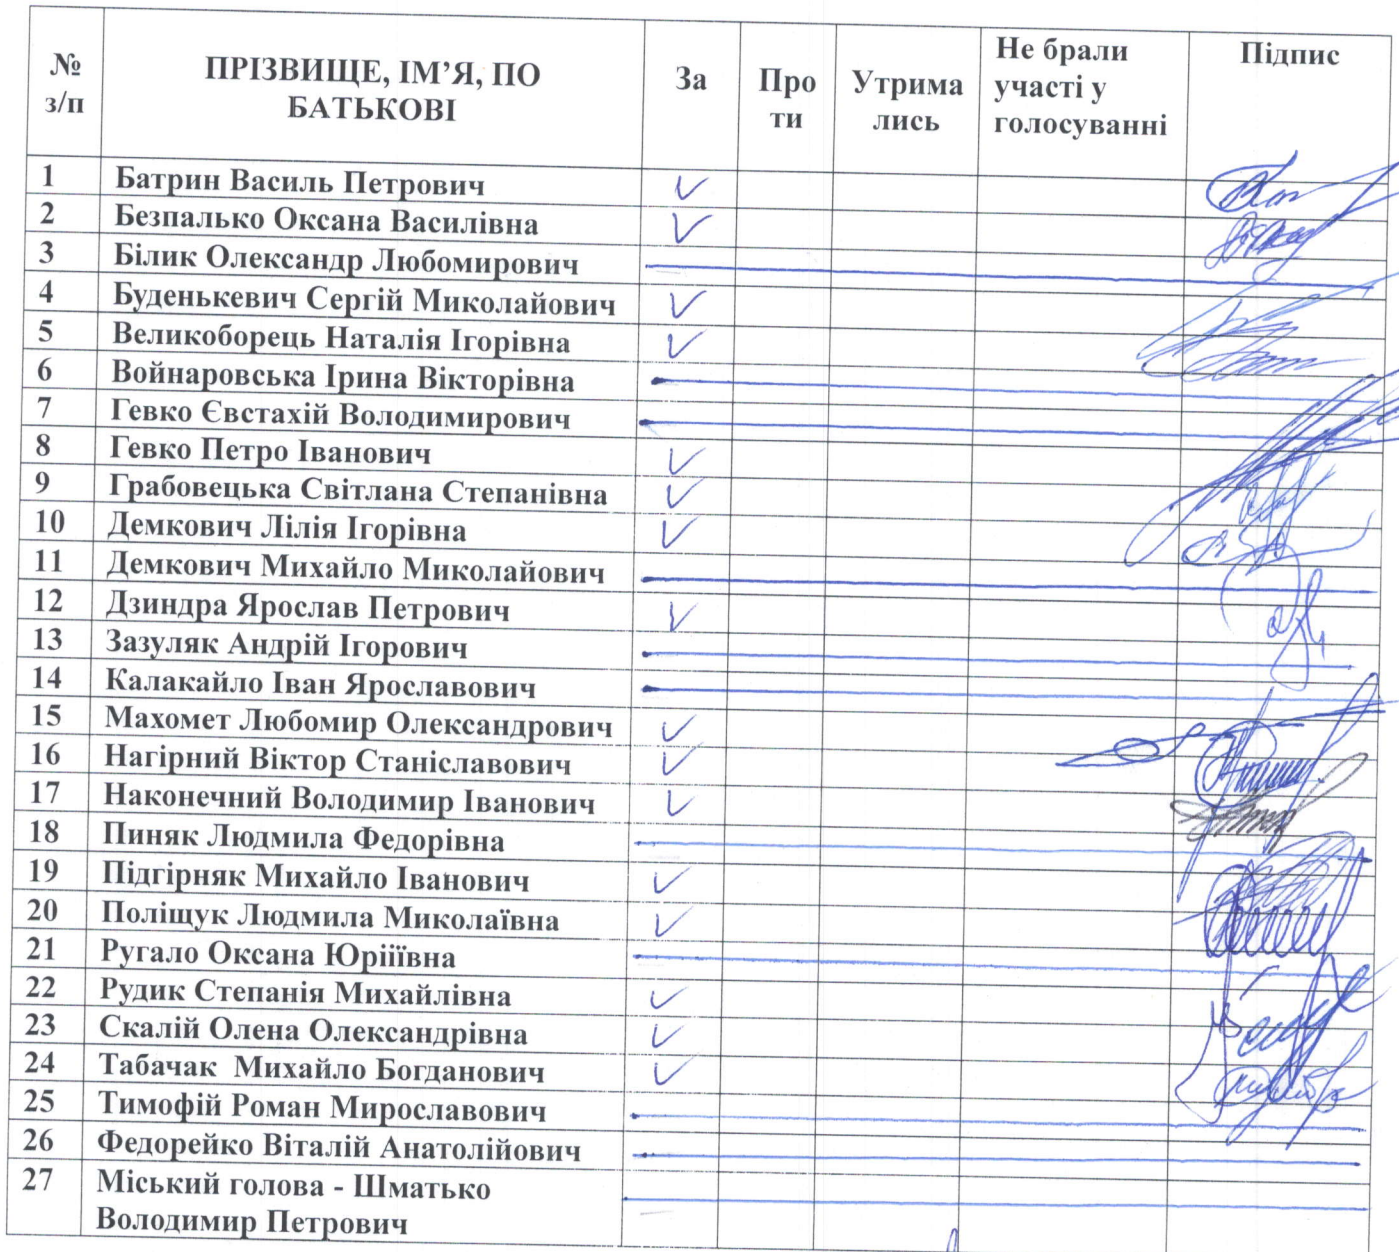 № з/п ПРІЗВИЩЕ, ІМ’Я, ПО БАТЬКОВІ За Про ти Утрима лись Не брали участі у голосуванні Підпис
1 Батрин Василь Петрович V
2 Безпалько Оксана Василівна V
3 Білик Олександр Любомирович
4 Буденькевич Сергій Миколайович V
5 Великоборець Наталія Ігорівна V
6 Войнаровська Ірина Вікторівна
7 Гевко Євстахій Володимирович
8 Гевко Петро Іванович V
9 Грабовецька Світлана Степанівна V
10 Демкович Лілія Ігорівна V
11 Демкович Михайло Миколайович
12 Дзиндра Ярослав Петрович V
13 Зазуляк Андрій Ігорович
14 Калакайло Іван Ярославович
15 Махомет Любомир Олександрович V
16 Нагірний Віктор Станіславович V
17 Наконечний Володимир Іванович V
18 Пиняк Людмила Федорівна
19 Підгірняк Михайло Іванович V
20 Поліщук Людмила Миколаївна V
21 Ругало Оксана Юріїївна
22 Рудик Степанія Михайлівна V
23 Скалій Олена Олександрівна V
24 Табачак Михайло Богданович V
25 Тимофій Роман Мирославович
26 Федорейко Віталій Анатолійович
27 Міський голова - Шматько
Володимир Петрович